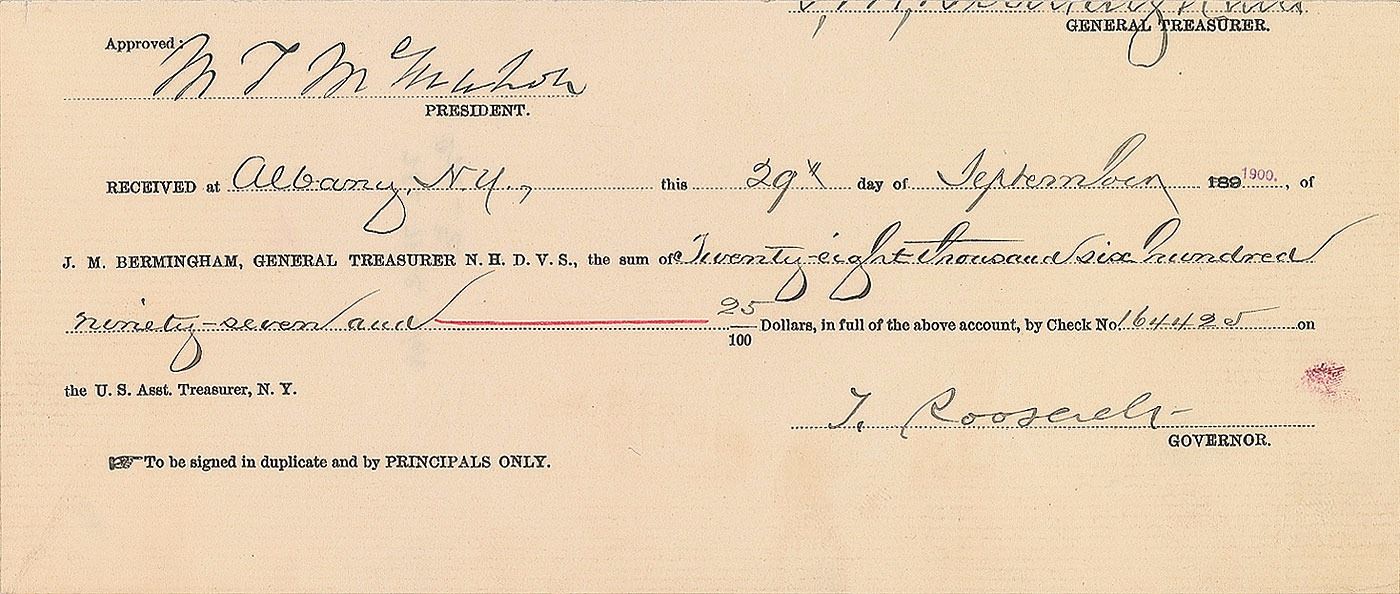 GENERAL TREASURER.
Approved:
M T McMahon
PRESIDENT.
RECEIVED at Albany, N.Y., this 29th day of September 189 1900., of
J. M. BERMINGHAM, GENERAL TREASURER N. H. D. V. S., the sum of Twenty-eight thousand six hundred
ninety-seven and 25/100 Dollars, in full of the above account, by Check No. 164425 on
the U. S. Asst. Treasurer, N. Y.
T. Roosevelt
GOVERNOR.
☞ To be signed in duplicate and by PRINCIPALS ONLY.